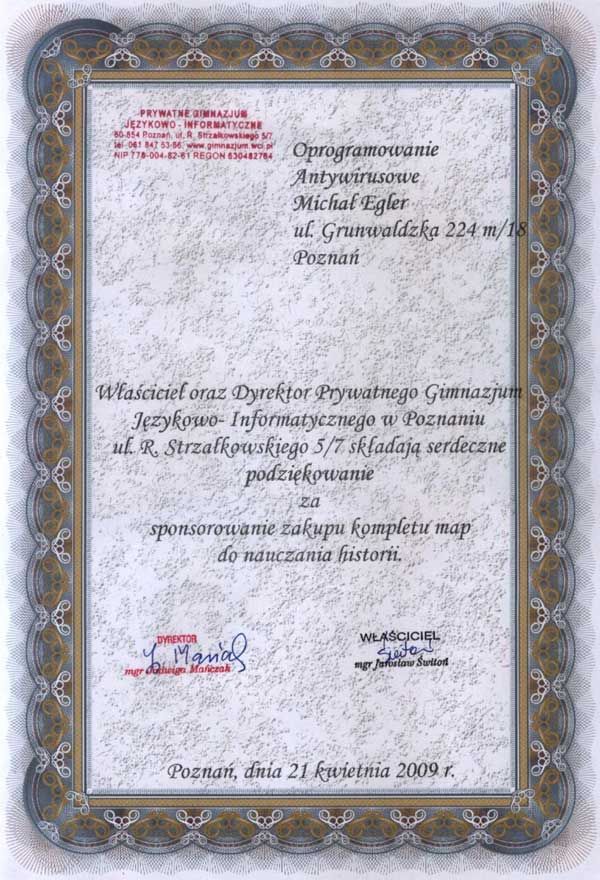 PRYWATNE GIMNAZJUM
JĘZYKOWO - INFORMATYCZNE
60-854 Poznań, ul. R. Strzałkowskiego 5/7
tel. 061 847 53 56, www.gimnazjum.wci.pl
NIP 778-004-82-61 REGON 630482764
Oprogramowanie
Antywirusowe
Michał Egler
ul. Grunwaldzka 224 m/18
Poznań
Właściciel oraz Dyrektor Prywatnego Gimnazjum
Językowo- Informatycznego w Poznaniu
ul. R. Strzałkowskiego 5/7 składają serdeczne
podziękowanie
za
sponsorowanie zakupu kompletu map
do nauczania historii.
DYREKTOR
mgr Jadwiga Mańczak
WŁAŚCICIEL
mgr Jarosław Świtoń
Poznań, dnia 21 kwietnia 2009 r.